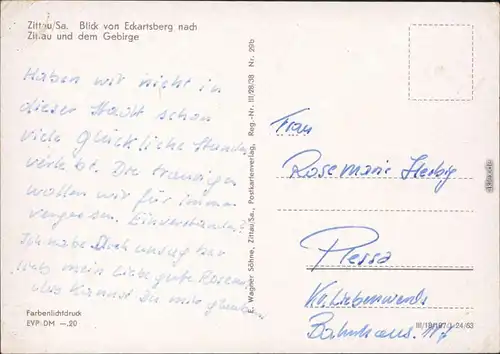 Zittau/Sa. Blick von Eckartsberg nach
Zittau und dem Gebirge
Haben wir nicht in
dieser Stadt schon
viele glückliche Stunden
verlebt. Die traurigen
wollen wir für immer
vergessen. Einverstanden?
Ich habe Dich unsagbar
lieb mein liebe gute
kannst Du mir glauben
Farbenlichtdruck
EVP DM —.20
E. Wagner Söhne, Zittau/Sa., Postkartenverlag, Reg.-Nr. III/28/38 Nr. 29b
Frau
Rosemarie Herbig
Plessa
Kr. Liebenwerda
Bahnhaus 117